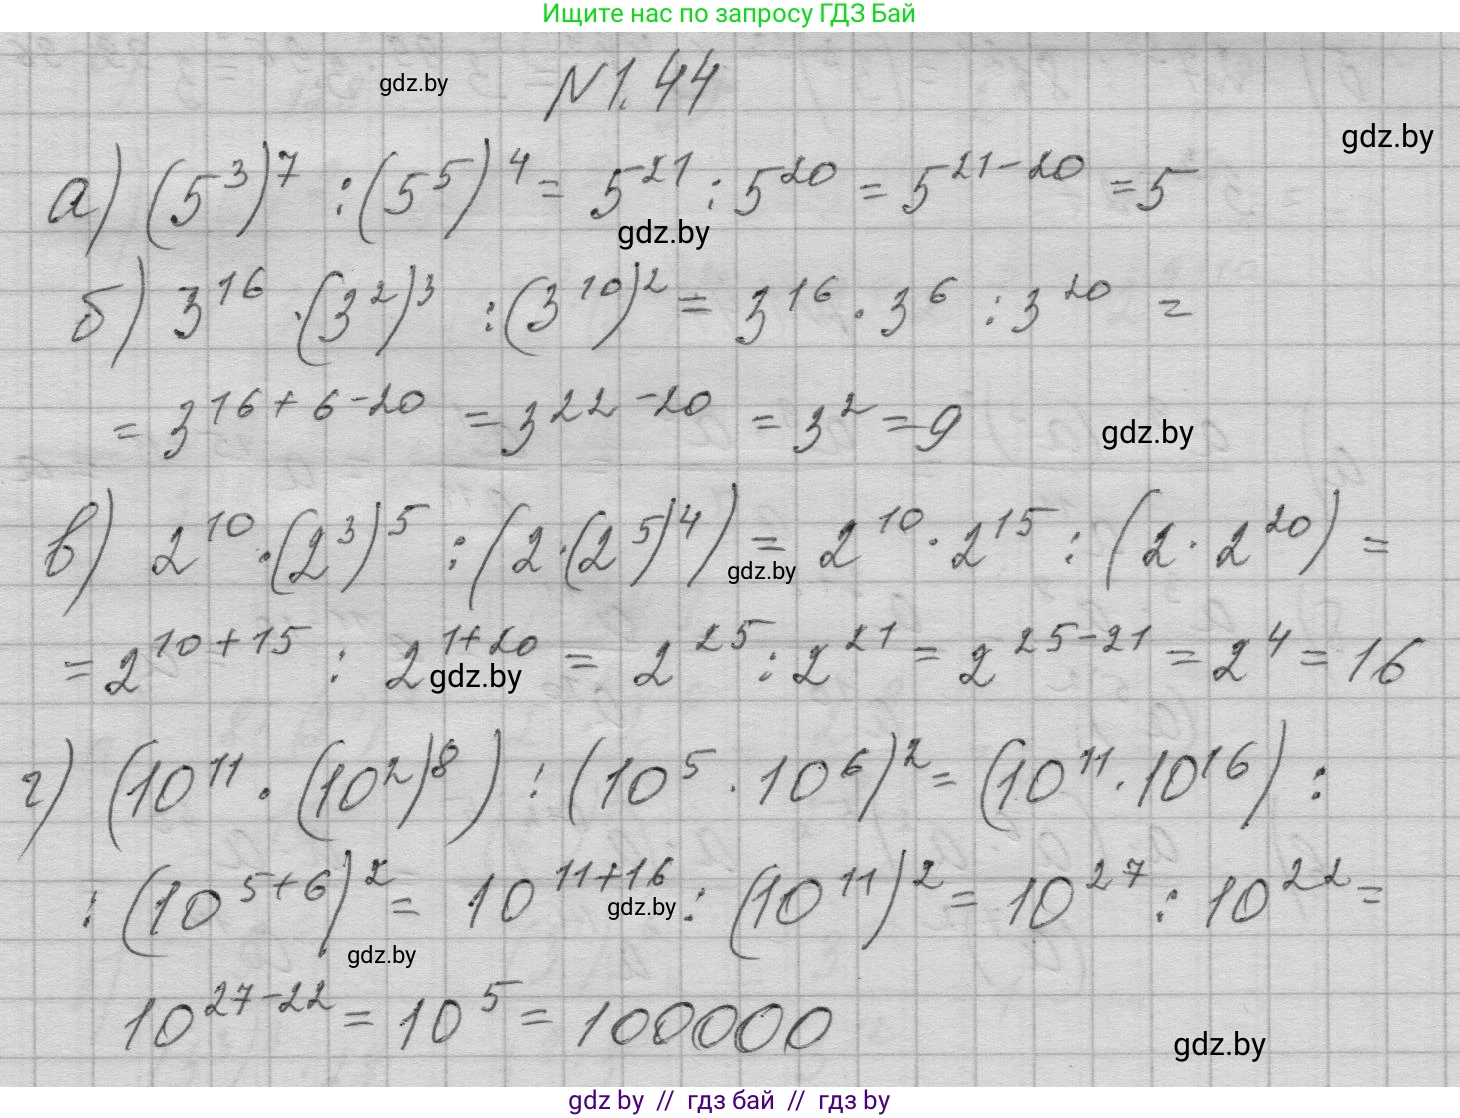 Ищите нас по запросу ГДЗ Бай
gdz.by
№1.44
gdz.by
а) (5^3)^7 : (5^5)^4 = 5^21 : 5^20 = 5^(21-20) = 5
gdz.by
б) 3^16 · (3^2)^3 : (3^10)^2 = 3^16 · 3^6 : 3^20 =
= 3^(16+6-20) = 3^(22-20) = 3^2 = 9
gdz.by
в) 2^10 · (2^3)^5 : (2 · (2^5)^4) = 2^10 · 2^15 : (2 · 2^20) =
gdz.by
= 2^(10+15) : 2^(1+20) = 2^25 : 2^21 = 2^(25-21) = 2^4 = 16
gdz.by
г) (10^11 · (10^2)^8) : (10^5 · 10^6)^2 = (10^11 · 10^16) :
: (10^(5+6))^2 = 10^(11+16) : (10^11)^2 = 10^27 : 10^22 =
gdz.by
gdz.by
10^(27-22) = 10^5 = 100000
gdz.by
gdz by // гдз бай // гдз by